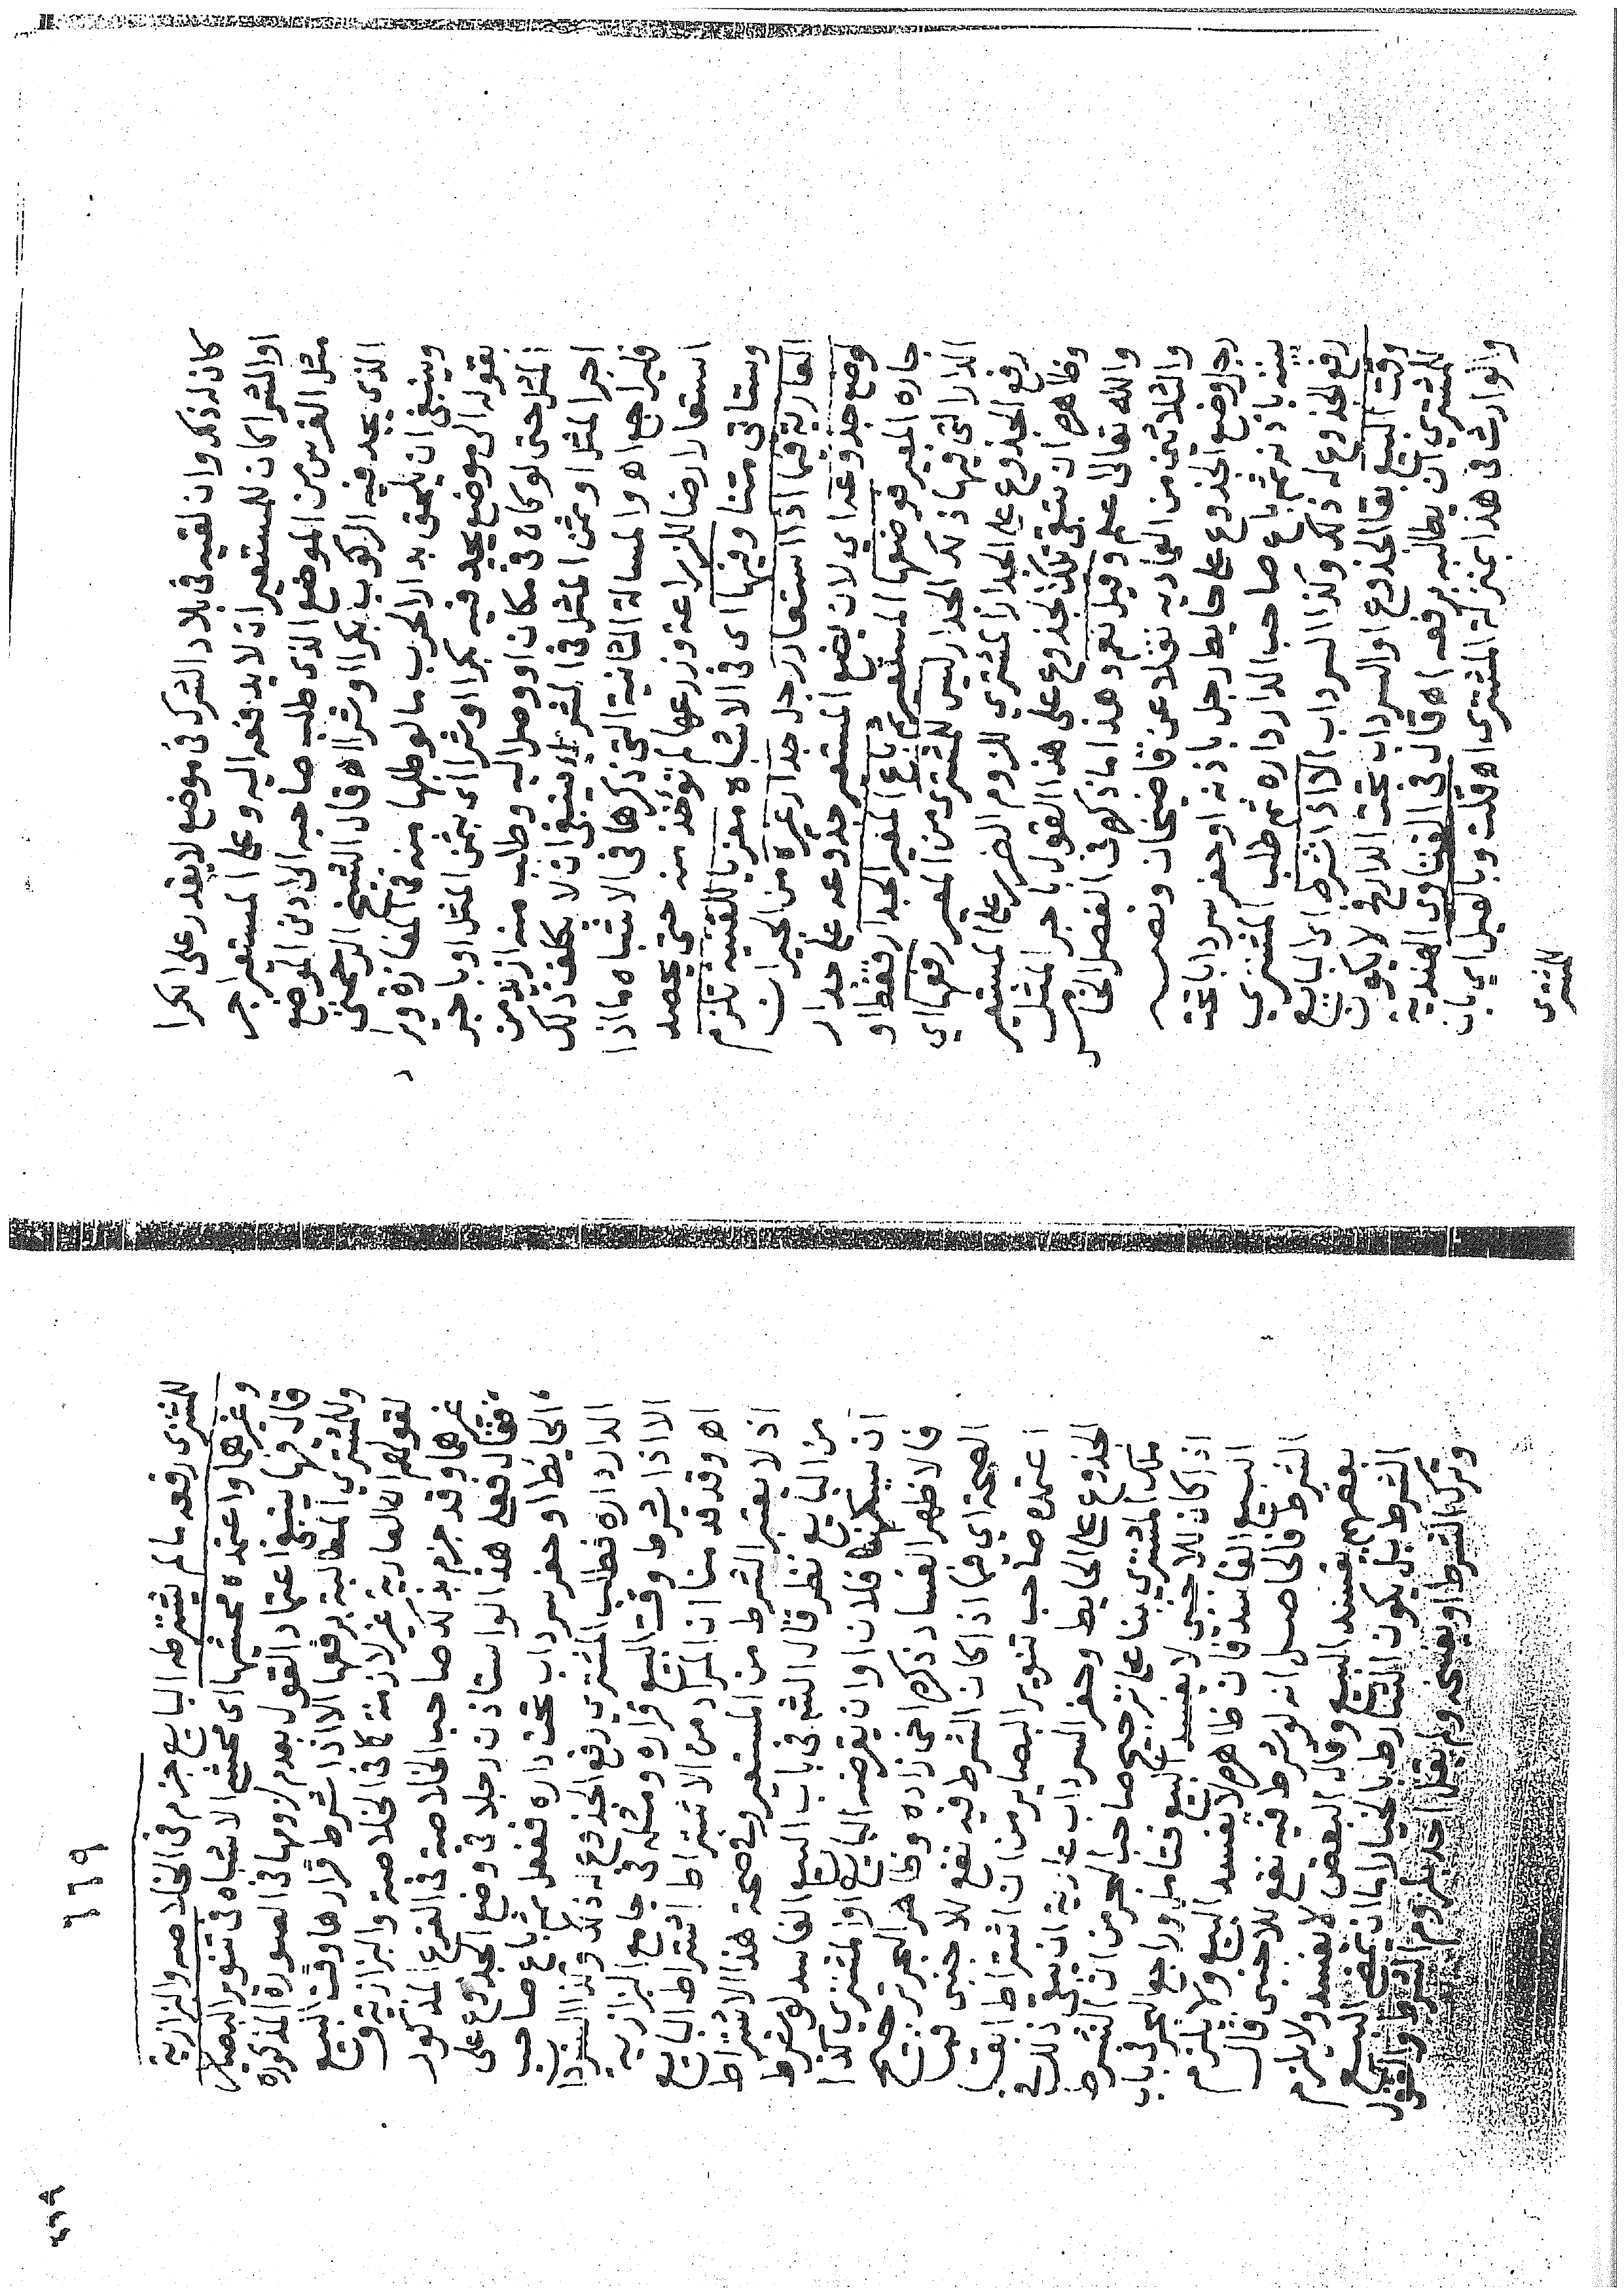 كان له ذكر وان لقيه في بلاد الشرك في موضع لا يقدر على الكرا
او الشرا كان للمستعير ان لا يدفعه اليه وعلى المستعير اجر
مثل الفرس من الموضع الذي طلب صاحبه الى ادنى الموضع
الذي يجد فيه الركوب بكرا او شرا اه قال الشيخ الرحمتي
وينبغي ان يلحق بدار الحرب ما لو طلبها منه في المفازة ويرا
بقوله الى موضع يجد فيه بكرا او شرا اي بثمن المثل او باجر
المثل حتى لو كان في مكان او وصل اليه وطلب منه ازيد من
اجر المثل او ثمن المثل في الشراء ينبغي ان لا يكلف ذلك
فليراجع اه والمسالة الثانية التي ذكرها في الاشباه ما اذا
استعار ارضا للزراعة وزرعها لم تؤخذ منه حتى يحصد
وستاتي متنا وفيها اي في الاشباه معزيا للقنيه تلزم
العارية فيما اذا استعار رجل جدار غيره من الجيران
لوضع جذوعه اي لان يضع المستعير جذوعه على جدار
جاره المعير فوضعها المستعير ثم باع المعير الجدار فقط او
الدار التي فيها ذكر الجدار ليس للمشتري من المعير رفعها اي
رفع الجذوع على الجدار المشتري للزوم الضرر على المستعير
وظاهره ان تبقى تلك الجذوع على هذا القول باجر المثل
والله تعالى اعلم وقيل نعم وهذا ما ذكره في الفصل الخامس
والثلاثين من العمادية نقلا عن قاضيخان ونصه
رجل وضع الجذوع على حايط رجل باذنه او حفر سردابا تحت
بيته باذنه ثم باع صاحب الدار داره ثم طلب المشتري
رفع الجذوع له ذلك وكذا السرداب الا اذا شرط اي البايع
وقت البيع بقا الجذوع او السرداب تحت الدار فح لا يكون
للمشتري ان يطالبه برفعه اه قال في الفتاوى الهندية
والوارث في هذا بمنزلة المشتري اه قلت وبالقيل اي بان
للمشتري
٦٦٩
للمشتري رفعه ما لم يشترطه البايع جزم في الخلاصه والبزازية
وغيرهما واعتمده محشيها اي محشي الاشباه في تنوير البصاير
قال فيها ينبغي اعتماد القول بعدم لزومها في الصورة المذكورة
وللمشتري المطالبة برفعها الا اذا شرط قرارها وقت البيع
لقولهم ان العارية غير لازمة كما في الخلاصة والبزازية و
غيرهما وقد جزم بذلك صاحب الخلاصة في الفرع المذكور
فقال فعلى هذا لو استاذن رجلا في وضع الجذوع على
الحايط او حفر سرداب تحت داره ففعل ثم باع صاحب
الدار داره فطلب المشتري رفع الجذوع له ذلك وكذا السرداب
الا اذا شرط وقت البيع قراره ومثله في جامع البزازيه
اه وقد قدمنا ان المراد من الاشتراط اشتراط البايع
اذ لا يعتبر الشرط من المستعير وفي صحة هذا الاشتراط
من البايع نظر قال الشـ في باب البيع الفاسد لو شرط
ان يسكنها فلان او ان يقرضه البايع او المشتري كذا
فالاظهر الفساد ذكره اخي زاده وظاهر البحر ترجيح
الصحة اي فيما اذا كان الشرط فيه نفع للاجنبي فيما
اعتمده صاحب تنوير البصاير من ان اشتراط ابقا
الجذوع على الحايط وحفر السرداب عارية ان يبقى ذلك في
ملك المشتري بنا على ترجيح صاحب البحر من ان الشرط
اذا كان للاجنبي لا يفسد البيع فتامل وراجع البحر في باب
البيع الفاسد فان ظاهره لا يفسد البيع ولا يلزم
الشرط فالحاصل انه لو شرط فيه نفع للاجنبي قال
بعضهم يفسد البيع وقال البعض لا يفسد ولا يلزم
الشرط بل يكون الشارط بالخيار اما ان يمضي البيع
وترك الشرط او يفسخه ولم يقل احد بلزوم الشرط والقول